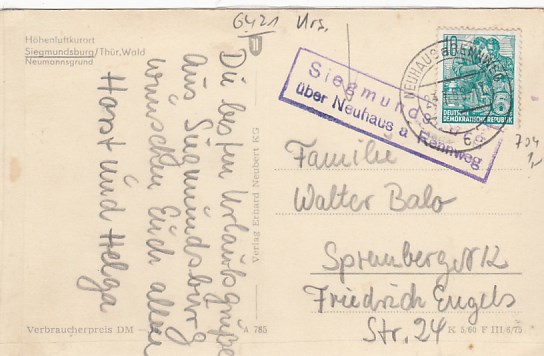 6421 Urs.
Höhenluftkurort
Siegmundsburg/Thür. Wald
Neumannsgrund
Die besten Urlaubsgrüße
aus Siegmundsburg
wünschen Euch allen
Horst und Helga
Verlag Erhard Neubert KG
Siegmundsburg
über Neuhaus a Rennweg
NEUHAUS a RENNWEG
10
6
DEUTSCHE
DEMOKRATISCHE REPUBLIK
704
1,-
Familie
Walter Balo
Spremberg N.K
Friedrich Engels
Str. 24
Verbraucherpreis DM
A 785
K 5/60 F III/6/73